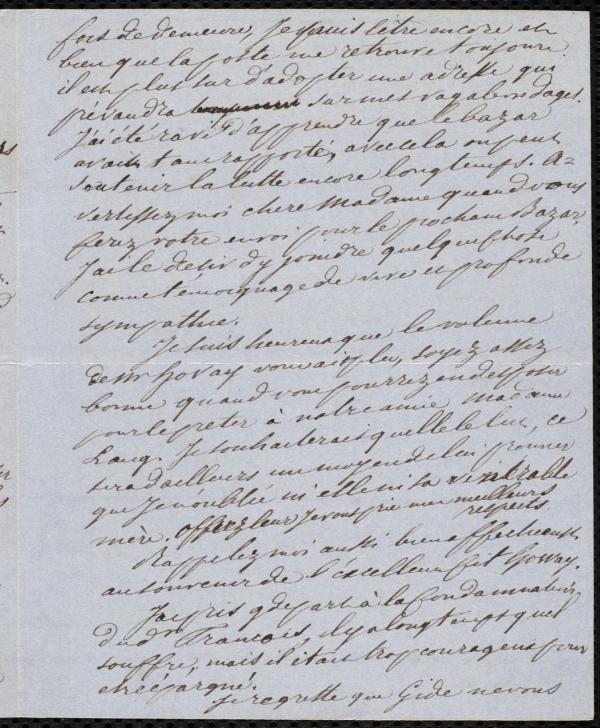 fois de demeure, Je puis l'être encore et
bien que la poste me retrouve toujours
il est plus sur d'adopter une adresse qui
prévaudra sur mes vagabondages.
J'ai été ravie d'apprendre que le bazar
avait tant rapporté, avec cela on peut
soutenir la lutte encore longtemps. A=
vertissez moi chere Madame quand vous
ferez votre envoi pour le prochain Bazar,
J'ai le desir d'y joindre quelque chose
comme temoignage de vive et profonde
sympathie.
Je suis heureuse que le volume
de Mr Govay vous ai plu, soyez assez
bonne quand vous pourrez en disposer
pour le preter à notre amie Madame
Laug. Je souhaiterais quelle le lut, ce
sera d'ailleurs un moyen de lui prouver
que Je n'oublie ni elle ni sa vénérable
mère. Offrez leur Je vous prie mes meilleurs
respects.
Rappelez moi aussi bien affectueust
au souvenir de l'excellent Govay.
J'ai pris gde part à la condamnation
du dr François, il y a longtemps qu'il
souffre, mais il était trop courageux pour
etre épargné.
Je regrette que Gide ne vous